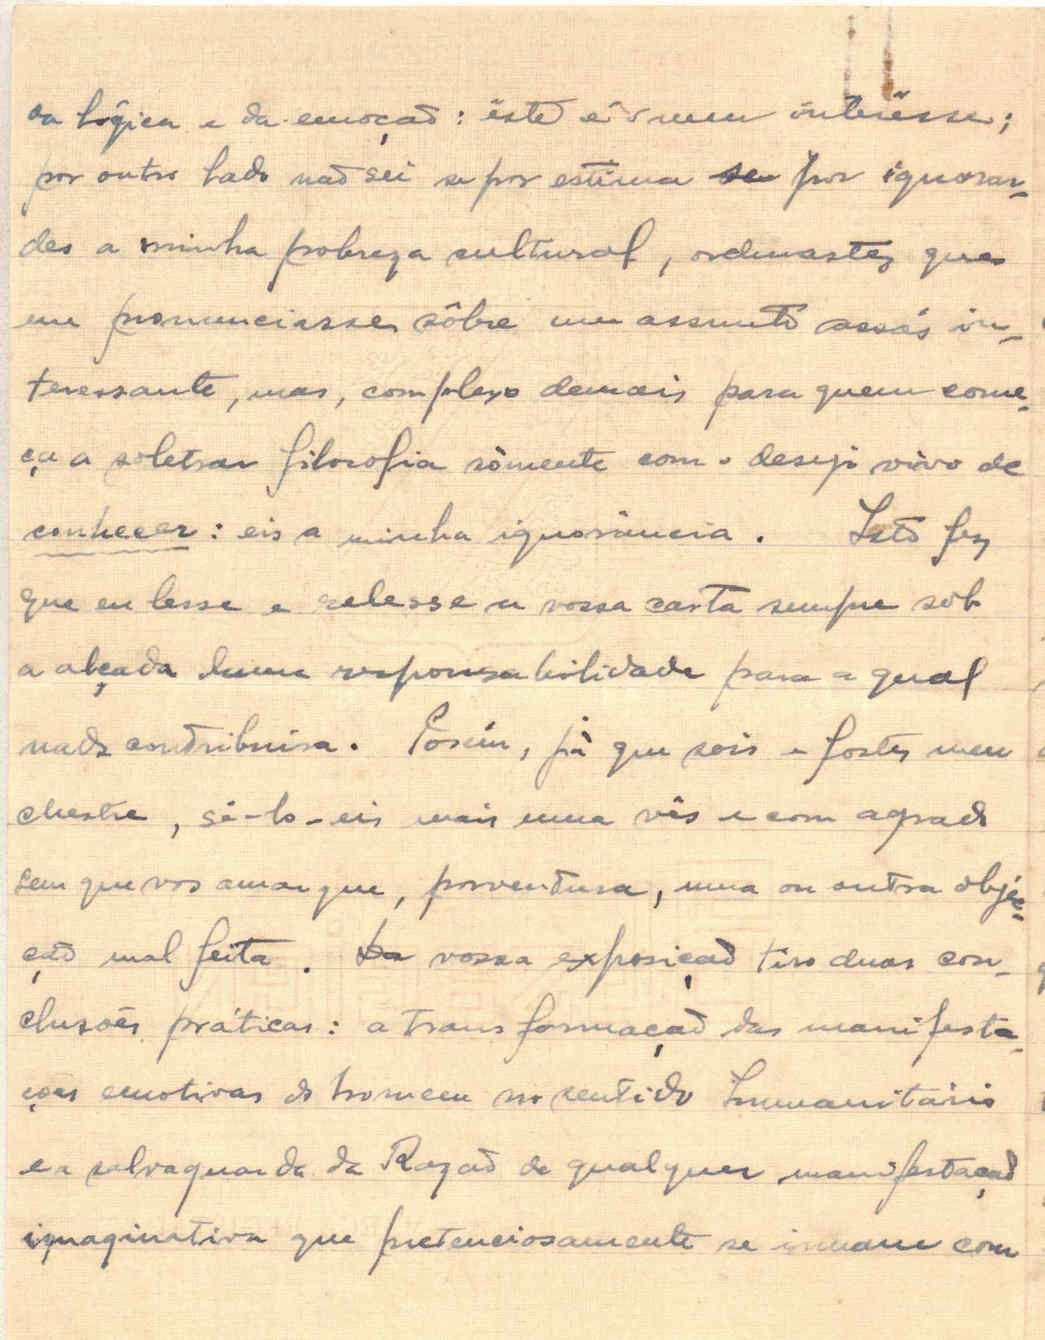 da lógica e da emoção: êste é o meu interêsse;
por outro lado não sei se por estima se por ignorar-
des a minha pobreza cultural, ordenastes que
me pronunciasse sôbre um assunto assás in-
teressante, mas, complexo demais para quem come-
ça a soletrar filosofia sòmente com o desejo vivo de
conhecer: eis a minha ignorância. Isto fez
que eu lesse e relesse a vossa carta sempre sob
a alçada duma responsabilidade para a qual
nada contribuira. Porém, já que sois e fostes meu
Mestre, sê-lo-eis mais uma vês e com agrado
sem que vos amargue, porventura, uma ou outra objéc-
ção mal feita. Da vossa exposição tiro duas con-
clusões práticas: a transformação das manifesta-
ções emotivas do homem no sentido humanitário
e a salvaguarda da Razão de qualquer manifestação
imaginativa que pretenciosamente se irmane com